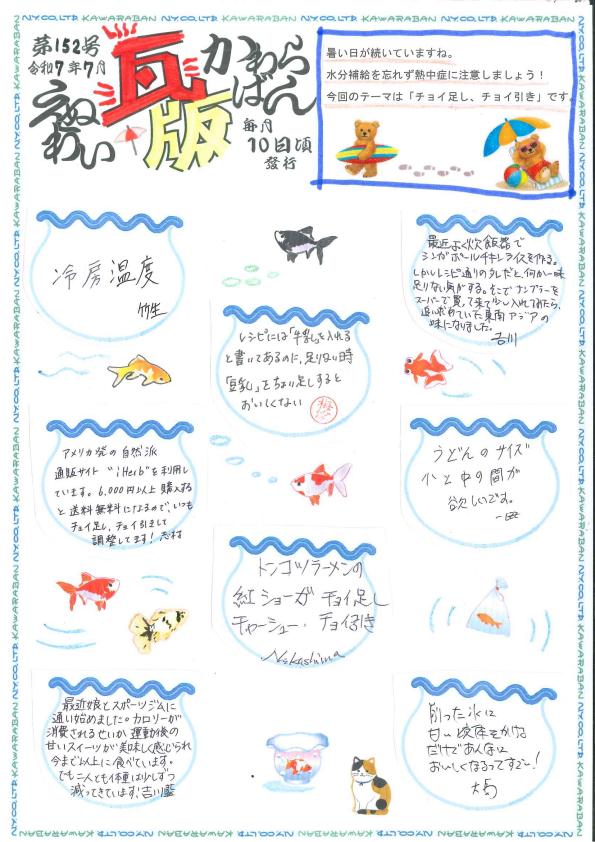 第152号
令和7年7月
えぬ
わい
瓦
版
かわら
ばん
毎月
10日頃
発行
暑い日が続いていますね。
水分補給を忘れず熱中症に注意しましょう！
今回のテーマは「チョイ足し、チョイ引き」です。
冷房温度
竹生
最近よく炊飯器で
シンガポールチキンライスを作る。
しかしレシピ通りのタレだと、何か一味
足りない気がする。そこでナンプラーを
スーパーで買って来て少し入れてみたら、
追い求めていた東南アジアの
味になりました。
吉川
レシピには「牛乳」を入れる
と書いてあるのに、足りない時
「豆乳」をちょい足しすると
おいしくない
アメリカ発の自然派
通販サイト "iHerb"を利用し
ています。6,000円以上購入する
と送料無料になるので、いつも
チョイ足し、チョイ引きして
調整してます！志村
うどんのサイズ
小と中の間が
欲しいです。
トンコツラーメンの
紅ショーガ チョイ足し
チャーシュー・チョイ引き
Nakashima
最近娘とスポーツジムに
通い始めました。カロリーが
消費されるせいか、運動後の
甘いスイーツが美味しく感じられ
今まで以上に食べています。
でも二人とも体重は少しずつ
減ってきています。吉川藍
削った氷に
甘い液体をかける
だけであんなに
おいしくなるってすごー！
N.Y.CO.,LTD. KAWARABAN